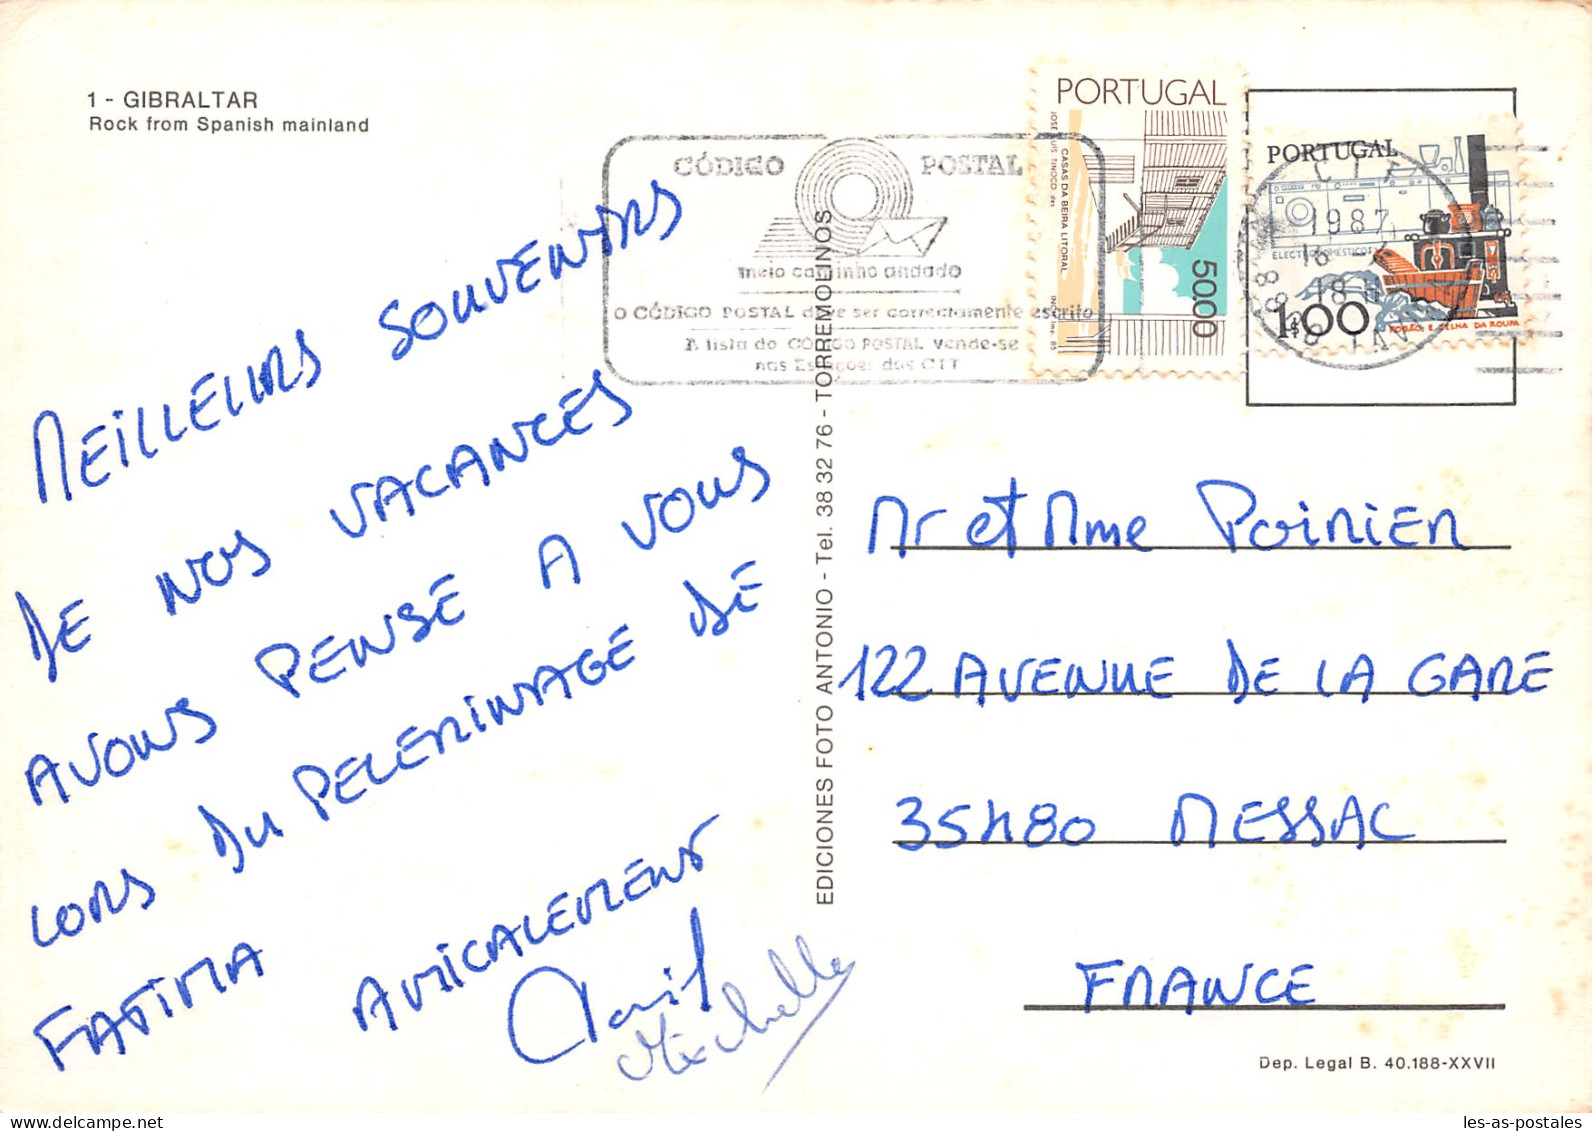 1 - GIBRALTAR
Rock from Spanish mainland
MEILLEURS SOUVENIRS
DE NOS VACANCES
AVONS PENSE A VOUS
LORS DU PELERINAGE DE
FATIMA AMICALEMENT
Michelle
EDICIONES FOTO ANTONIO - Tel. 38 32 76 - TORREMOLINOS
CÓDIGO POSTAL
meio caminho andado
O CÓDIGO POSTAL deve ser correctamente escrito
A lista do CÓDIGO POSTAL vende-se
nas Estações dos CTT
PORTUGAL
CASAS DA BEIRA LITORAL
JOSÉ LUIS TINOCO des
50.00
PORTUGAL
ELECTRODOMÉSTICOS
1$00
FOGÃO E CELHA DA ROUPA
1987
18 H
Mr et Mme Poirier
122 AVENUE DE LA GARE
35480 MESSAC
FRANCE
Dep. Legal B. 40.188-XXVII
les-as-postales